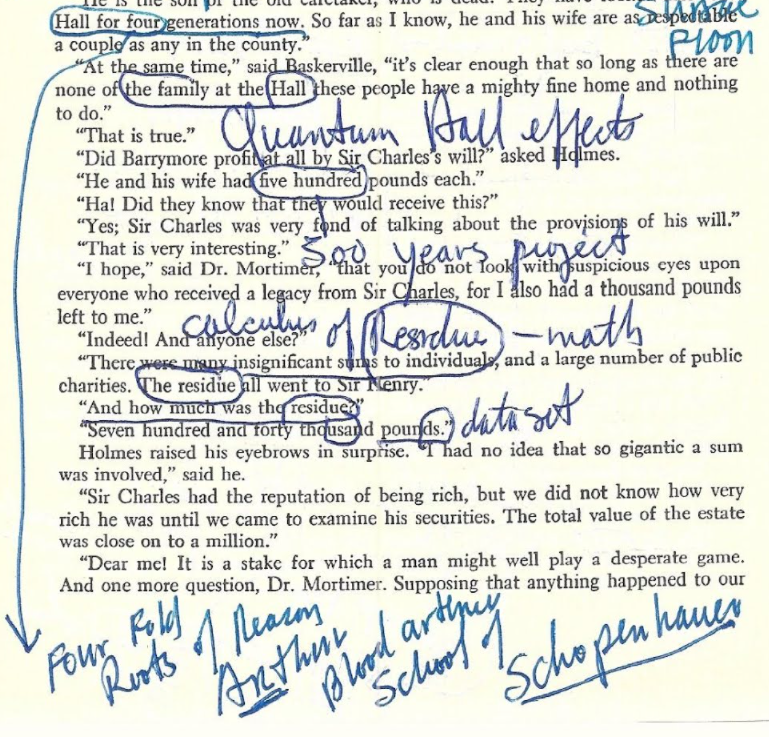 He is the son of the old caretaker, who is dead. They have
Hall for four generations now. So far as I know, he and his wife are as respectable
a couple as any in the county."
"At the same time," said Baskerville, "it's clear enough that so long as there are
none of the family at the Hall these people have a mighty fine home and nothing
to do."
"That is true."
Quantum Hall effects
"Did Barrymore profit at all by Sir Charles's will?" asked Holmes.
"He and his wife had five hundred pounds each."
"Ha! Did they know that they would receive this?"
"Yes; Sir Charles was very fond of talking about the provisions of his will."
"That is very interesting."
500 years project
"I hope," said Dr. Mortimer, "that you do not look with suspicious eyes upon
everyone who received a legacy from Sir Charles, for I also had a thousand pounds
left to me."
calculus of Residue – math
"Indeed! And anyone else?"
"There were many insignificant sums to individuals, and a large number of public
charities. The residue all went to Sir Henry."
"And how much was the residue?"
"Seven hundred and forty thousand pounds."
data set
Holmes raised his eyebrows in surprise. "I had no idea that so gigantic a sum
was involved," said he.
"Sir Charles had the reputation of being rich, but we did not know how very
rich he was until we came to examine his securities. The total value of the estate
was close on to a million."
"Dear me! It is a stake for which a man might well play a desperate game.
And one more question, Dr. Mortimer. Supposing that anything happened to our
Four Fold
Roots of Reason
Arthur
Blood arteries
School of
Schopenhauer